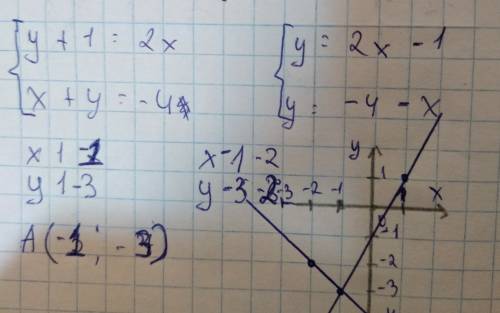 y + 1 = 2x
x + y = -4
y = 2x - 1
y = -4 - x
x 1 -1
y 1 -3
x -1 -2
y -3 -2
A(-1; -3)
y
1
x
-3 -2 -1
1
-1
-2
-3